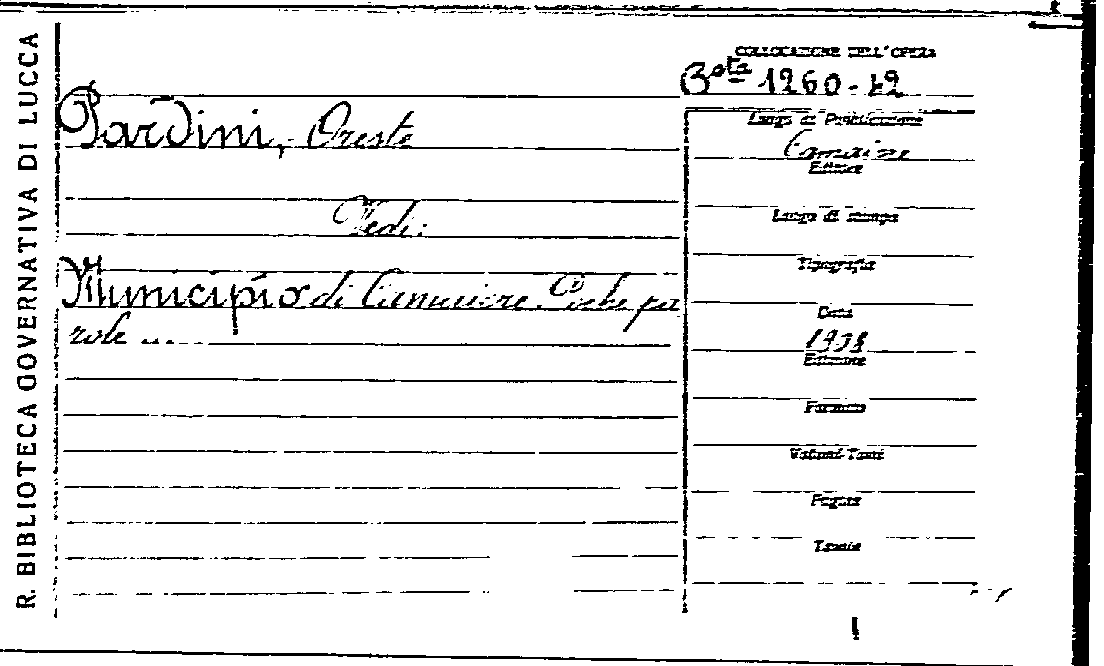 R. BIBLIOTECA GOVERNATIVA DI LUCCA
COLLOCAZIONE DELL'OPERA
B.ta 1260-12
Pardini, Oreste
Vedi:
Municipio di Camaiore. Poche pa
role ...
Luogo di Pubblicazione
Camaiore
Editore
Luogo di stampa
Tipografia
Data
Edizione
Formato
Volumi-Tomi
Pagine
Tavole